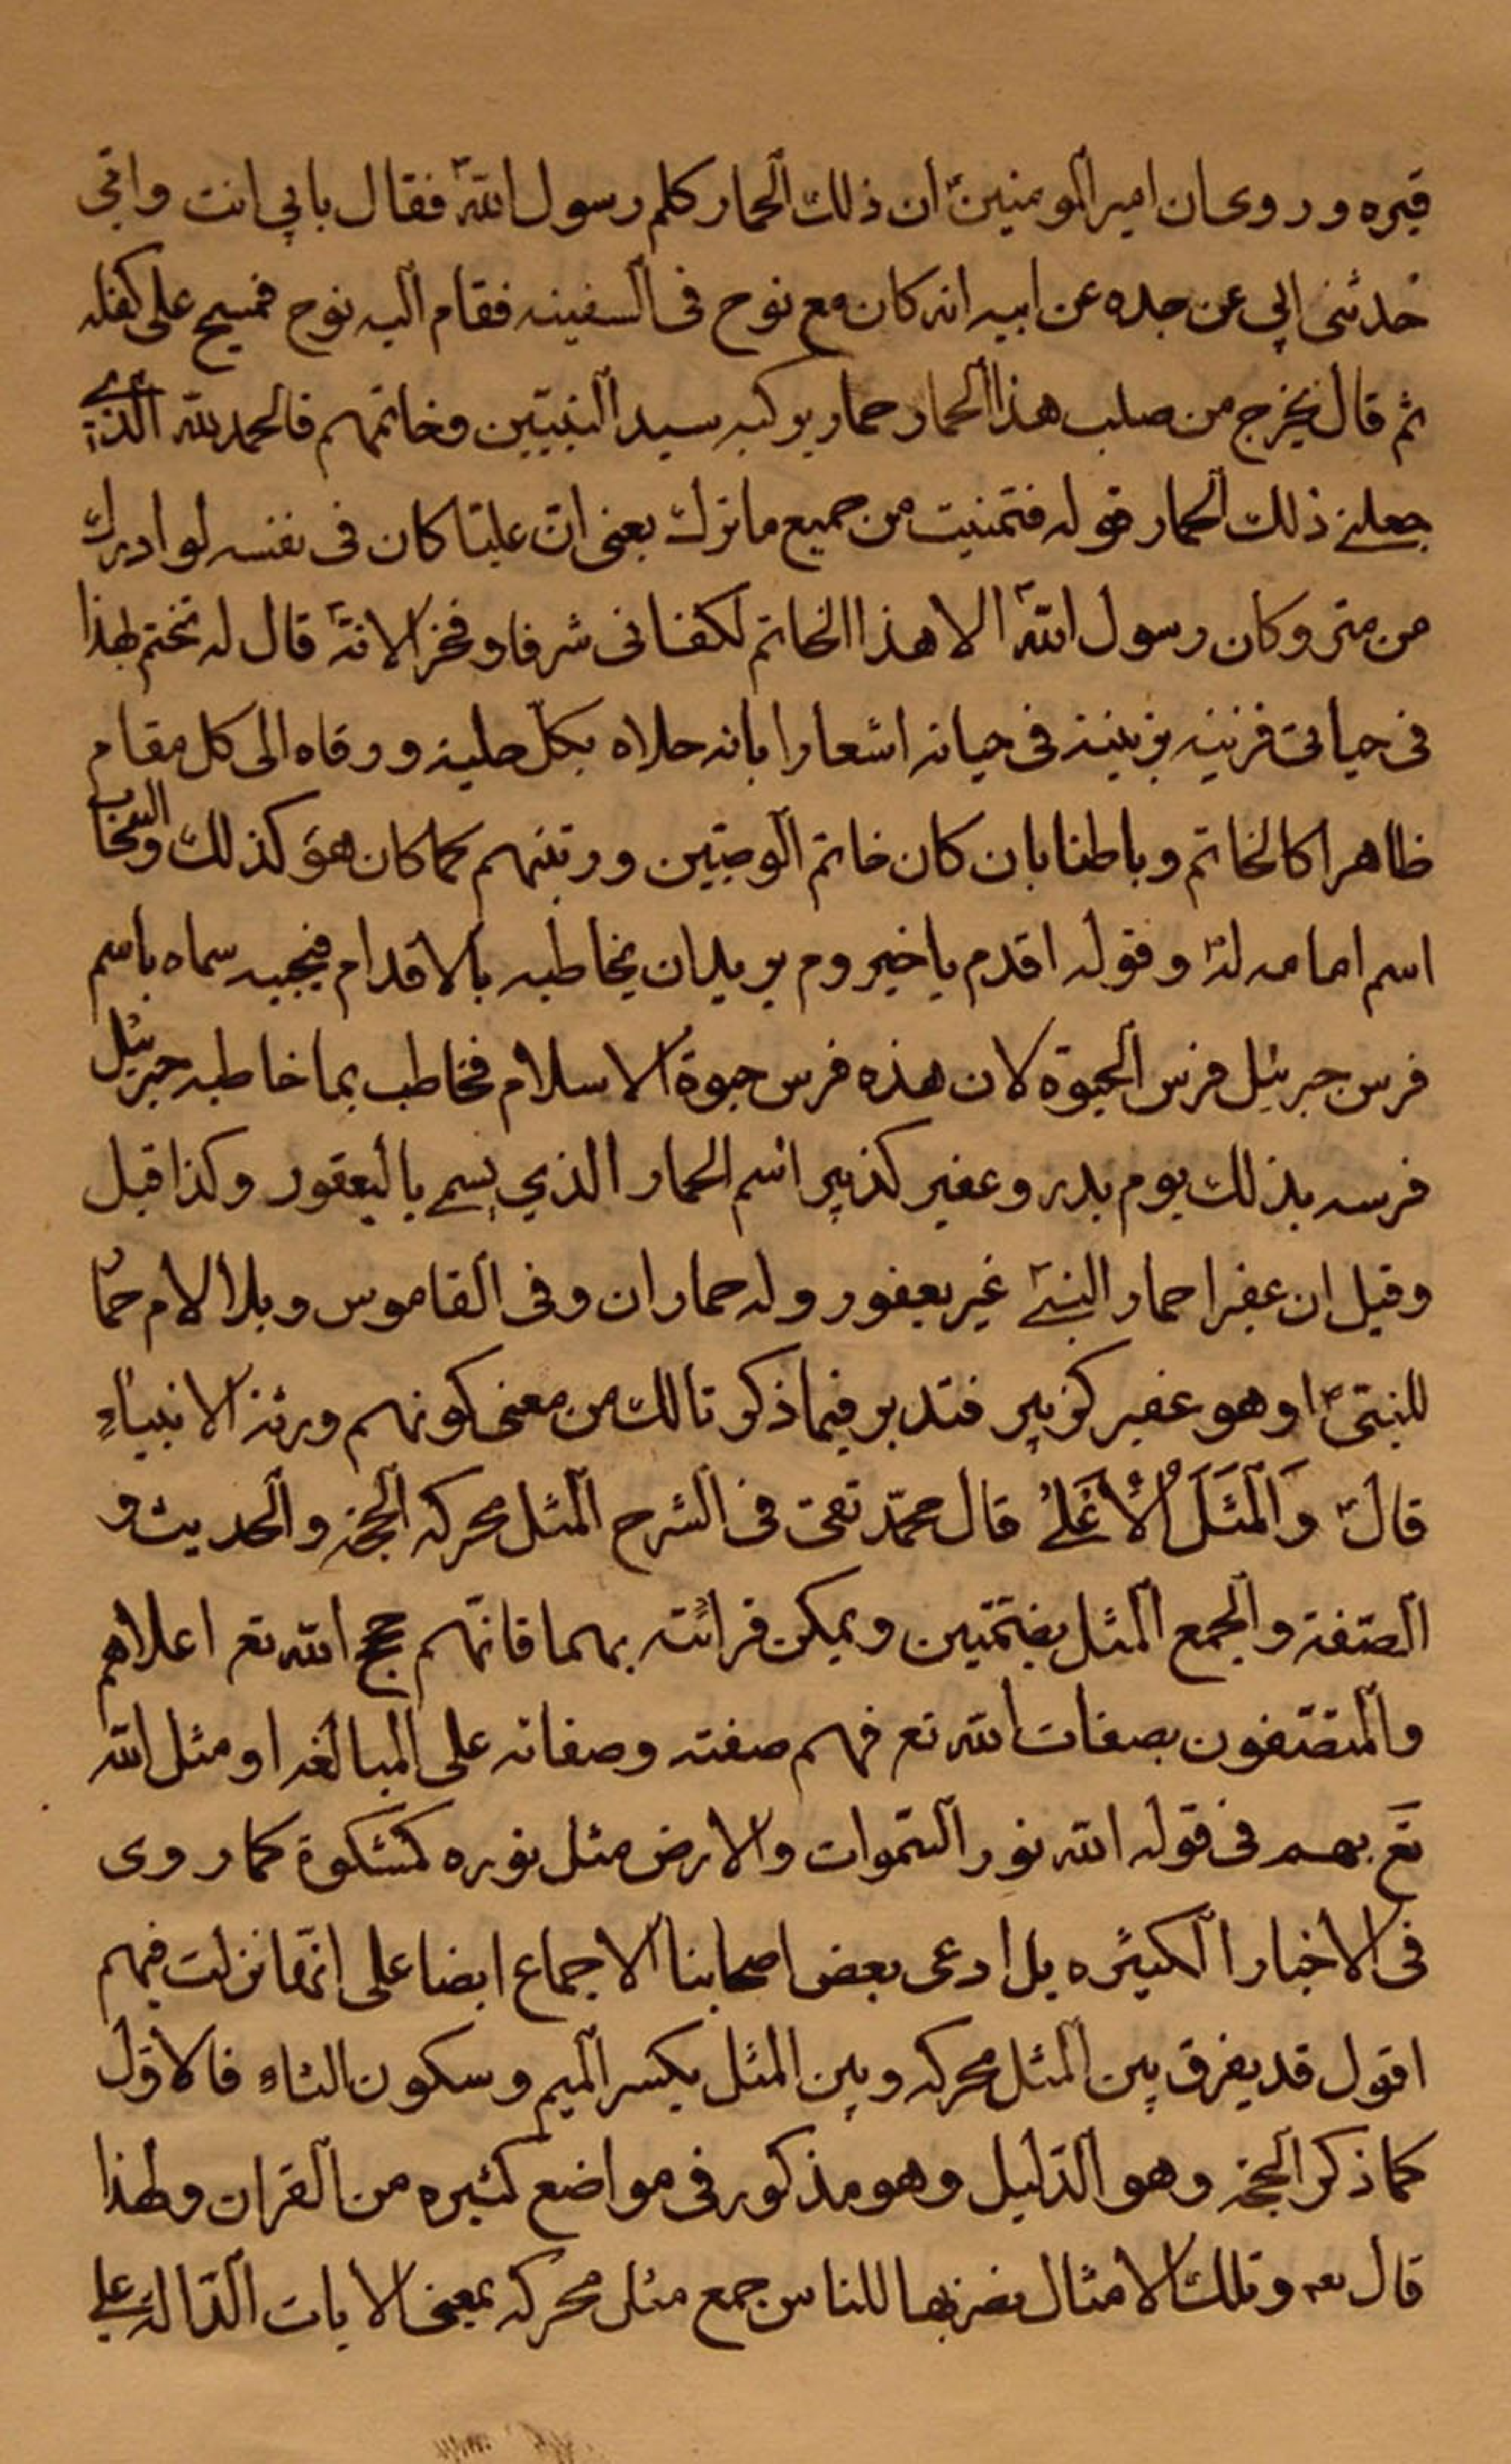 قبره وروى ان امير المومنينؑ ان ذلك الحمار كلم رسول اللهؐ فقال بابي انت وامي
حدثنى ابي عن جده عن ابيه انه كان مع نوح فى السفينه فقام اليه نوح فمسح على كفله
ثم قال يخرج من صلب هذا الحمار حمار يركبه سيد النبيّين وخاتمهم فالحمد لله الذي
جعلنے ذلك الحمار قوله فتمنيت من جميع ما ترك يعنى انّ عليّا كان فى نفسه لو ادرك
من متروكان رسول اللهؐ الا هذا الخاتم لكفانى شرفا وفخرا لانهؐ قال له تختم بهذا
فى حياتى فزينه بزينته فى حياته اشعارا بانه حلاه بكلّ حلية ورقاه الى كل مقام
ظاهرا كالخاتم وباطنا بان كان خاتم الوصيّين ورتبتهم كما كان هوؐ كذلك والسحاب
اسم امامه لهؐ وقوله اقدم ياخيروم يريد ان يخاطبه بالاقدام فيجيبه سماه باسم
فرس جبرئيل فرس الحيوة لان هذه فرس حيوة الاسلام فخاطب بما خاطبه جبرئيل
فرسه بذلك يوم بدر وعفير كذبير اسم الحمار الذي يسمے باليعفور وكذا قيل
وقيل ان عفيرا حمار النبےؐ غير يعفور وله حماران وفى القاموس وبلا لام حمار
للنبىّؐ او هو عفير كزبير فتدبر فيما ذكرتا لك من معنى كونهم ورثة الانبياءِ
قالؑ وَالْمَثَلَ الْأَعْلےٰ قال محمّد تقى فى الشرح المثل محركه الحجة والحديث و
الصّفة والجمع المثل بضمّتين ويمكن قرائته بهما فانّهم حجج الله تع اعلاهم
والمتصّفون بصفات الله تع فهم صفته وصفاته على المبالغه او مثل الله
تع بهم فى قوله الله نور السّموات والارض مثل نوره كمشكوة كما روى
فى الاخبار الكثيره بل ادعى بعض اصحابنا الاجماع ايضا على انّها نزلت فيهم
اقول قد يفرق بين المثل محركه وبين المثل بكسر الميم وسكون الثاءِ فالاوّل
كما ذكر الحجة وهو الدّليل وهو مذكور فى مواضع كثيره من القران ولهذا
قال تعه وتلك الامثال نضربها للناس جمع مثل محركه بمعنى الايات الدّالة على